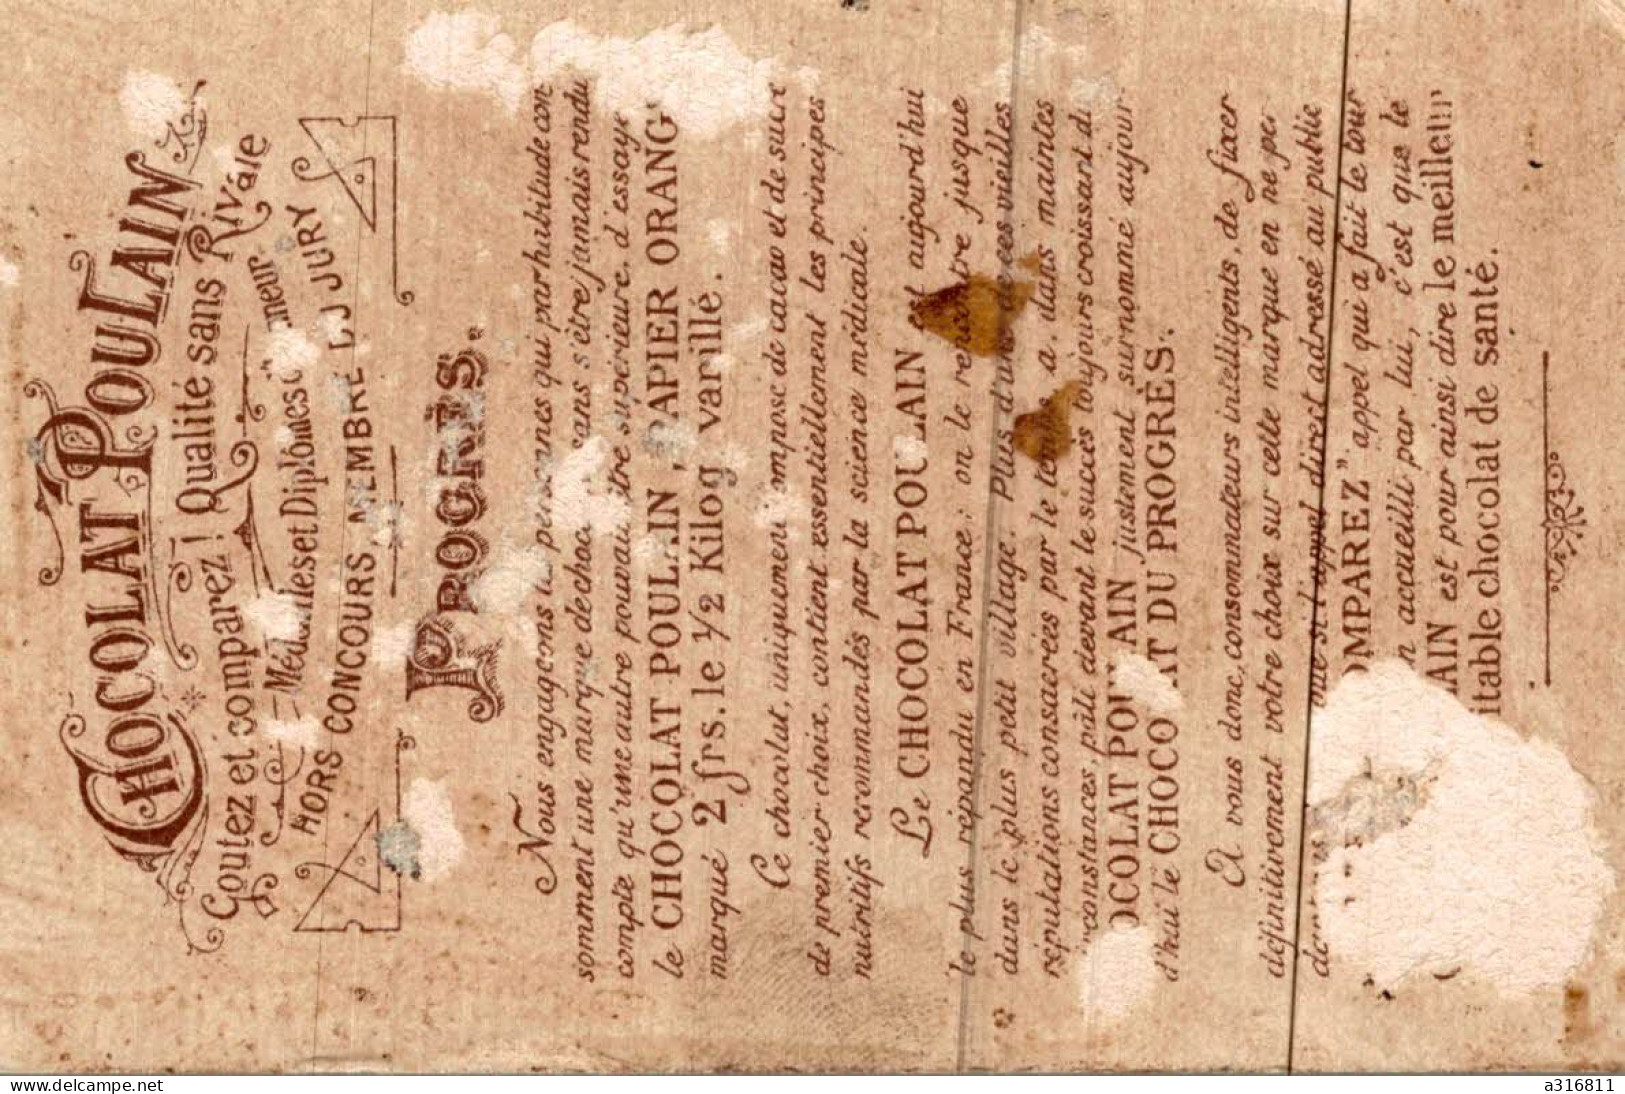 CHOCOLAT POULAIN
Goutez et comparez! Qualité sans Rivale
Médailles et Diplômes
HORS CONCOURS, MEMBRE DU JURY
PROGRÈS.
Nous engageons les personnes qui par habitude con
somment une marque de choc sans s'être jamais rendu
compte qu'une autre pouvait être supérieure, d'essayer
le CHOCOLAT POULAIN, PAPIER ORANG
marqué 2 frs. le ½ Kilog varillé.
Ce chocolat, uniquement composé de cacao et de sucre
de premier choix, contient essentiellement les principes
nutritifs recommandés par la science médicale.
Le CHOCOLAT POULAIN est aujourd'hui
le plus répandu en France; on le rencontre jusque
dans le plus petit village. Plus d'une de ces vieilles
réputations consacrées par le temps a, dans maintes
circonstances, pâli devant le succès toujours croissant du
OCOLAT POULAIN justement surnommé aujour-
d'hui le CHOCOLAT DU PROGRÈS.
A vous donc, consommateurs intelligents, de fixer
définitivement votre choix sur cette marque en ne per
que si l'appel direct adressé au public
OMPAREZ" appel qui a fait le tour
accueilli par lui, c'est que le
AIN est pour ainsi dire le meilleur
itable chocolat de santé.
delcampe.net
a316811